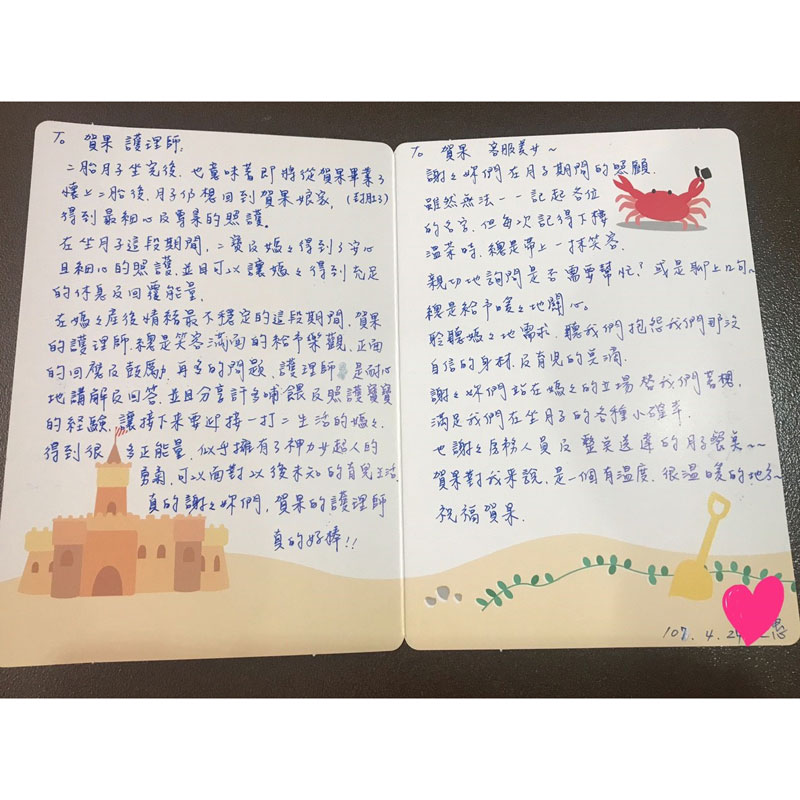 To 賀果 護理師:
二胎月子坐完後, 也意味著即將從賀果畢業了
懷上二胎後, 月子仍想回到賀果娘家,
得到最細心及專業的照護。
在坐月子這段期間, 二寶及媽々得到了安心
且細心的照護, 並且可以讓媽々得到充足
的休息及回覆能量.
在媽々產後情緒最不穩定的這段期間, 賀果
的護理師, 總是笑容滿面的給予樂觀, 正面
的回應及鼓勵, 再多的問題, 護理師 是耐心
地講解及回答, 並且分享許多哺餵及照護寶寶
的經驗, 讓接下來要迎接一打二生活的媽々,
得到很多正能量, 似乎擁有了神力女超人的
勇氣, 可以面對以後未知的育兒生活
真的謝々妳們, 賀果的護理師
真的好棒!!
To 賀果 客服美女~
謝々妳們在月子期間的照顧,
雖然無法一一記起各位
的名字, 但每次記得下樓
溫茶時, 總是帶上一抹笑容.
親切地詢問是否需要幫忙? 或是聊上几句~
總是給予暖々地關心。
聆聽媽々地需求, 聽我們抱怨我們那沒
自信的身材及育兒的
謝々妳們站在媽々的立場替我們著想,
滿足我們在坐月子的各種小確幸.
也謝々房務人員及 送達的月子餐點~~
賀果對我來說, 是一個有溫度, 很溫暖的地方~
祝福賀果.
107. 4. 24